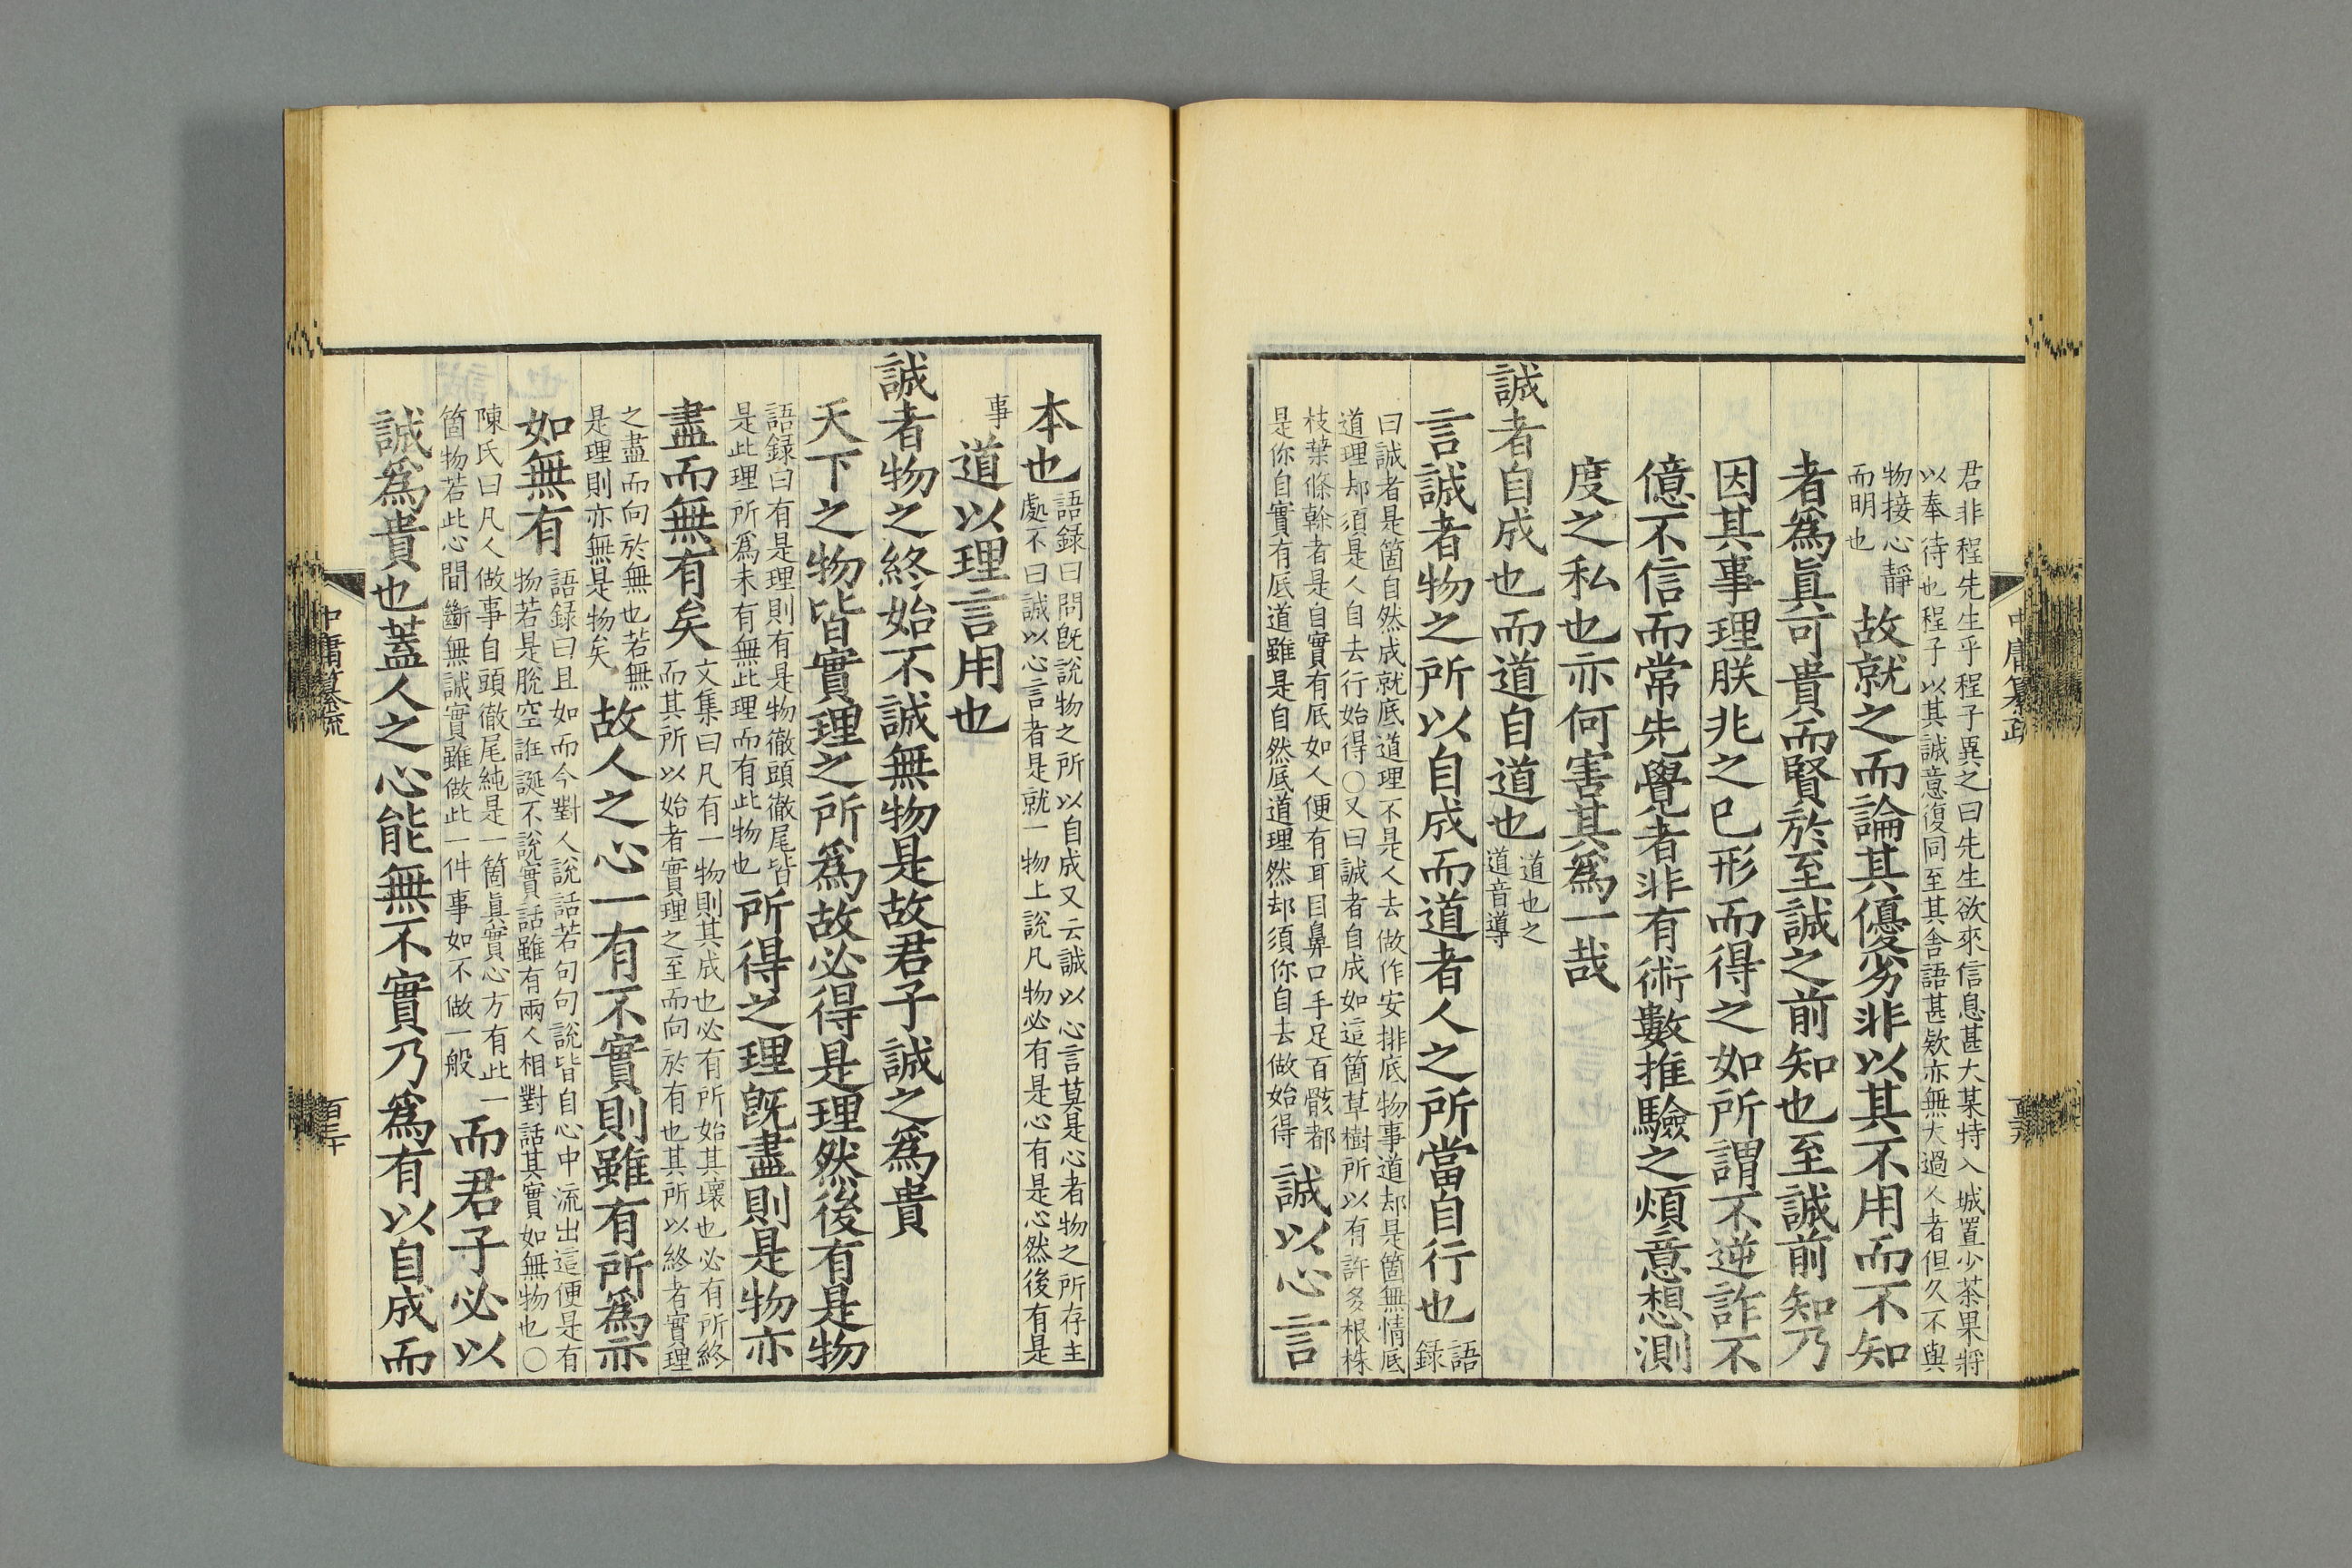 君非程先生乎程子異之曰先生欲來信息甚大某特入城置少茶果將
以奉待也程子以其誠意復同至其舍語甚欵亦無大過人者但久不與
物接心靜
而明也
故就之而論其優劣非以其不用而不知
者爲眞可貴而賢於至誠之前知也至誠前知乃
因其事理朕兆之已形而得之如所謂不逆詐不
億不信而常先覺者非有術數推驗之煩意想測
度之私也亦何害其爲一哉
誠者自成也而道自道也
道也之
道音導
言誠者物之所以自成而道者人之所當自行也
語
録
曰誠者是箇自然成就底道理不是人去做作安排底物事道却是箇無情底
道理却須是人自去行始得○又曰誠者自成如這箇草樹所以有許多根株
枝葉條榦者是自實有底如人便有耳目鼻口手足百骸都
是你自實有底道雖是自然底道理然却須你自去做始得
誠以心言
本也
語録曰問旣說物之所以自成又云誠以心言莫是心者物之所存主
處不曰誠以心言者是就一物上說凡物必有是心有是心然後有是
事
道以理言用也
誠者物之終始不誠無物是故君子誠之爲貴
天下之物皆實理之所爲故必得是理然後有是物
語録曰有是理則有是物徹頭徹尾皆
是此理所爲未有無此理而有此物也
所得之理旣盡則是物亦
盡而無有矣
文集曰凡有一物則其成也必有所始其壞也必有所終
而其所以始者實理之至而向於有也其所以終者實理
之盡而向於無也若無
是理則亦無是物矣
故人之心一有不實則雖有所爲亦
如無有
語録曰且如而今對人說話若句句說皆自心中流出這便是有
物若是脫空誑誕不說實話雖有兩人相對話其實如無物也○
陳氏曰凡人做事自頭徹尾純是一箇眞實心方有此一
箇物若此心間斷無誠實雖做此一件事如不做一般
而君子必以
誠爲貴也蓋人之心能無不實乃爲有以自成而
中庸纂疏
百三十